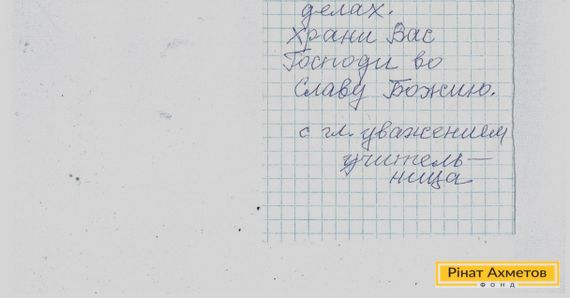 делах.
Храни Вас
Господи во
Славу Божию.
с гл. уважением
учитель—
ница
Рінат Ахметов
ФОНД